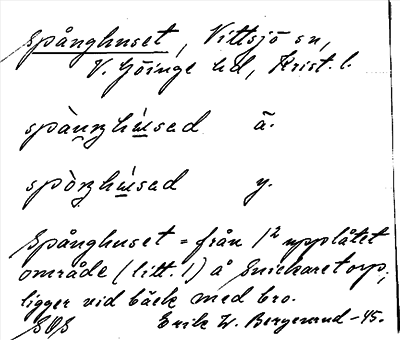 Spånghuset, Vittsjö sn,
V. Göinge hd, Krist. l.
spàu̯ŋhú̱sad ä.
spòŋhú̱sad y.
Spånghuset = från 1² upplåtet
område (litt. 1) å Snickaretorp,
ligger vid bäck med bro.
Erik W. Bergenrud -45.